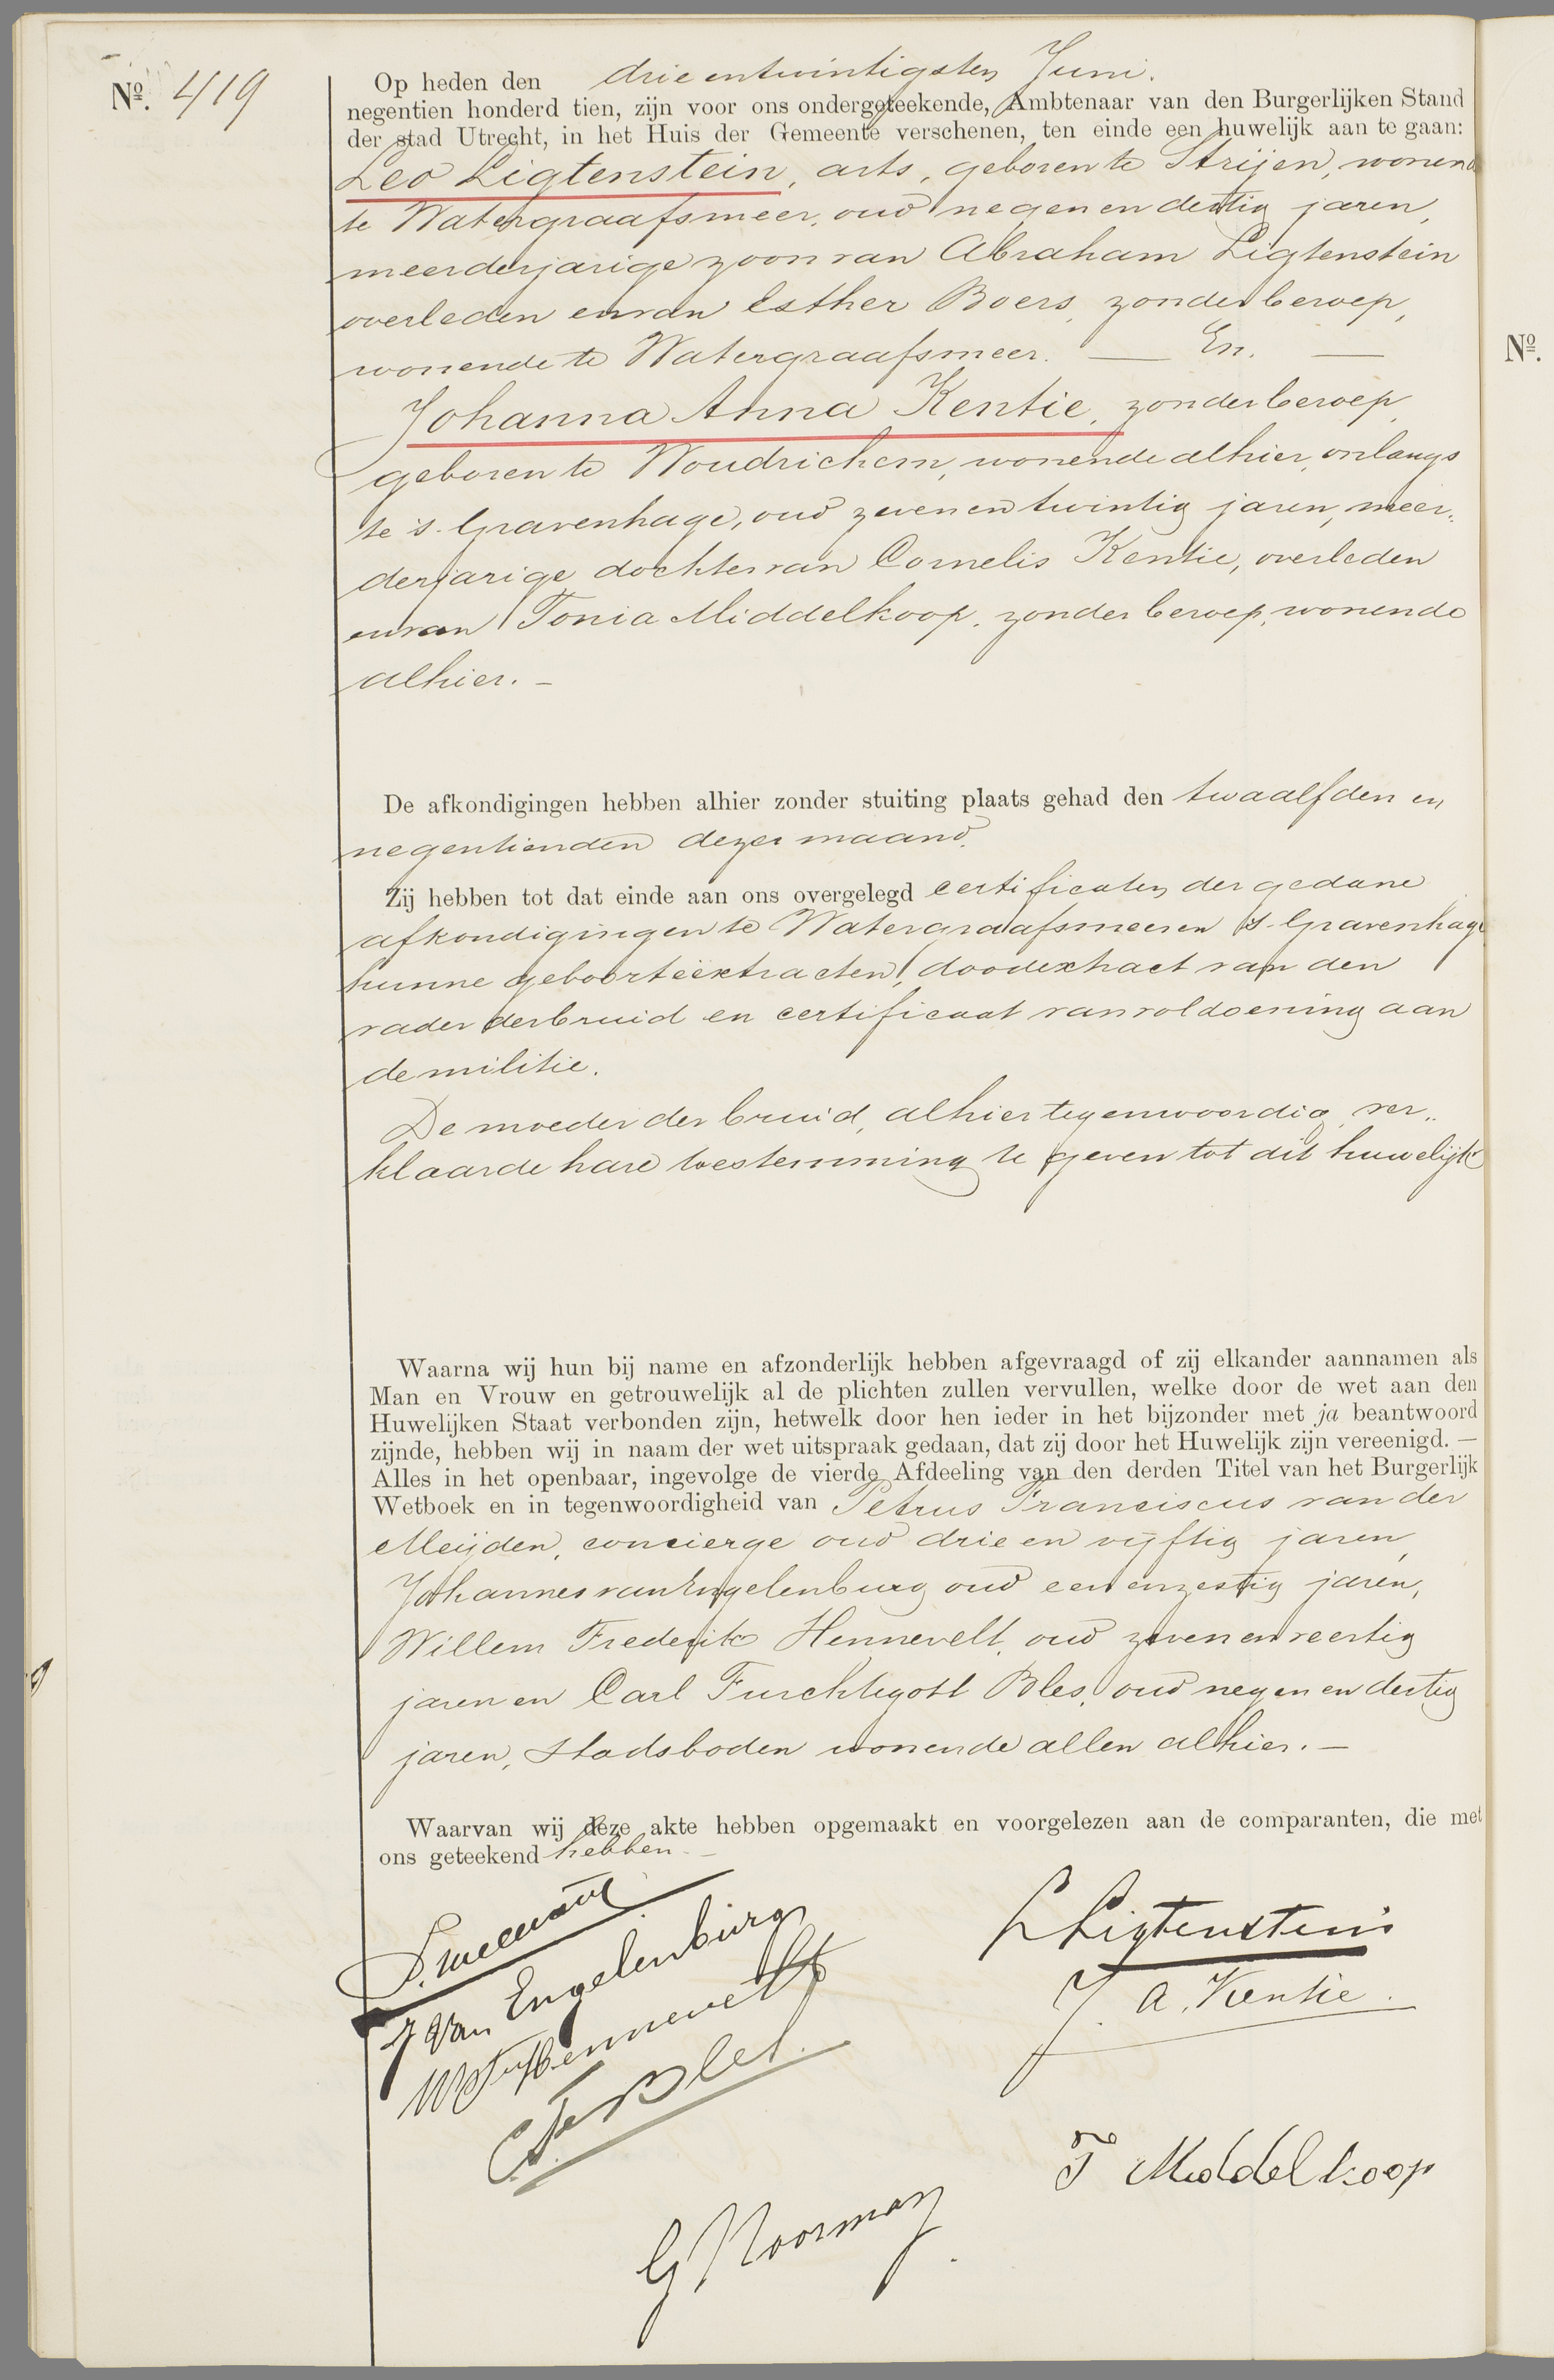 No. 419
Op heden den drieentwintigsten Juni.
negentien honderd tien, zijn voor ons ondergeteekende, Ambtenaar van den Burgerlijken Stand
der stad Utrecht, in het Huis der Gemeente verschenen, ten einde een huwelijk aan te gaan:
Leo Ligtenstein, arts, geboren te Strijen, wonende
te Watergraafsmeer, oud negenendertig jaren,
meerderjarige zoon van Abraham Ligtenstein
overleden en van Esther Boers, zonder beroep,
wonende te Watergraafsmeer. — En. —
Johanna Anna Kentie, zonder beroep,
geboren te Woudrichem, wonende alhier, onlangs
te 's Gravenhage, oud zevenentwintig jaren, meer„
derjarige dochter van Cornelis Kentie, overleden
en van Tonia Middelkoop, zonder beroep, wonende
alhier. —
De afkondigingen hebben alhier zonder stuiting plaats gehad den twaalfden en
negentienden dezer maand.
Zij hebben tot dat einde aan ons overgelegd certificaten der gedane
afkondigingen te Watergraafsmeer en 's Gravenhage
hunne geboorteextracten, doodextract van den
vader der bruid en certificaat van voldoening aan
de militie.
De moeder der bruid, alhier tegenwoordig, ver„
klaarde hare toestemming te geven tot dit huwelijk
Waarna wij hun bij name en afzonderlijk hebben afgevraagd of zij elkander aannamen als
Man en Vrouw en getrouwelijk al de plichten zullen vervullen, welke door de wet aan den
Huwelijken Staat verbonden zijn, hetwelk door hen ieder in het bijzonder met ja beantwoord
zijnde, hebben wij in naam der wet uitspraak gedaan, dat zij door het Huwelijk zijn vereenigd. —
Alles in het openbaar, ingevolge de vierde Afdeeling van den derden Titel van het Burgerlijk
Wetboek en in tegenwoordigheid van Petrus Franciscus van der
Meijden, concierge oud drie en vijftig jaren,
Johannes van Engelenburg oud eenenzestig jaren,
Willem Frederik Hennevelt, oud zevenenveertig
jaren en Carl Furchtegott Bles, oud negenendertig
jaren, stadsboden wonende allen alhier. —
Waarvan wij deze akte hebben opgemaakt en voorgelezen aan de comparanten, die met
ons geteekend hebben. —
L Ligtenstein
J van Engelenburg
J. A. Kentie.
WFHennevelt
C.F. Bles.
T Middelkoop
G Noorman
No.